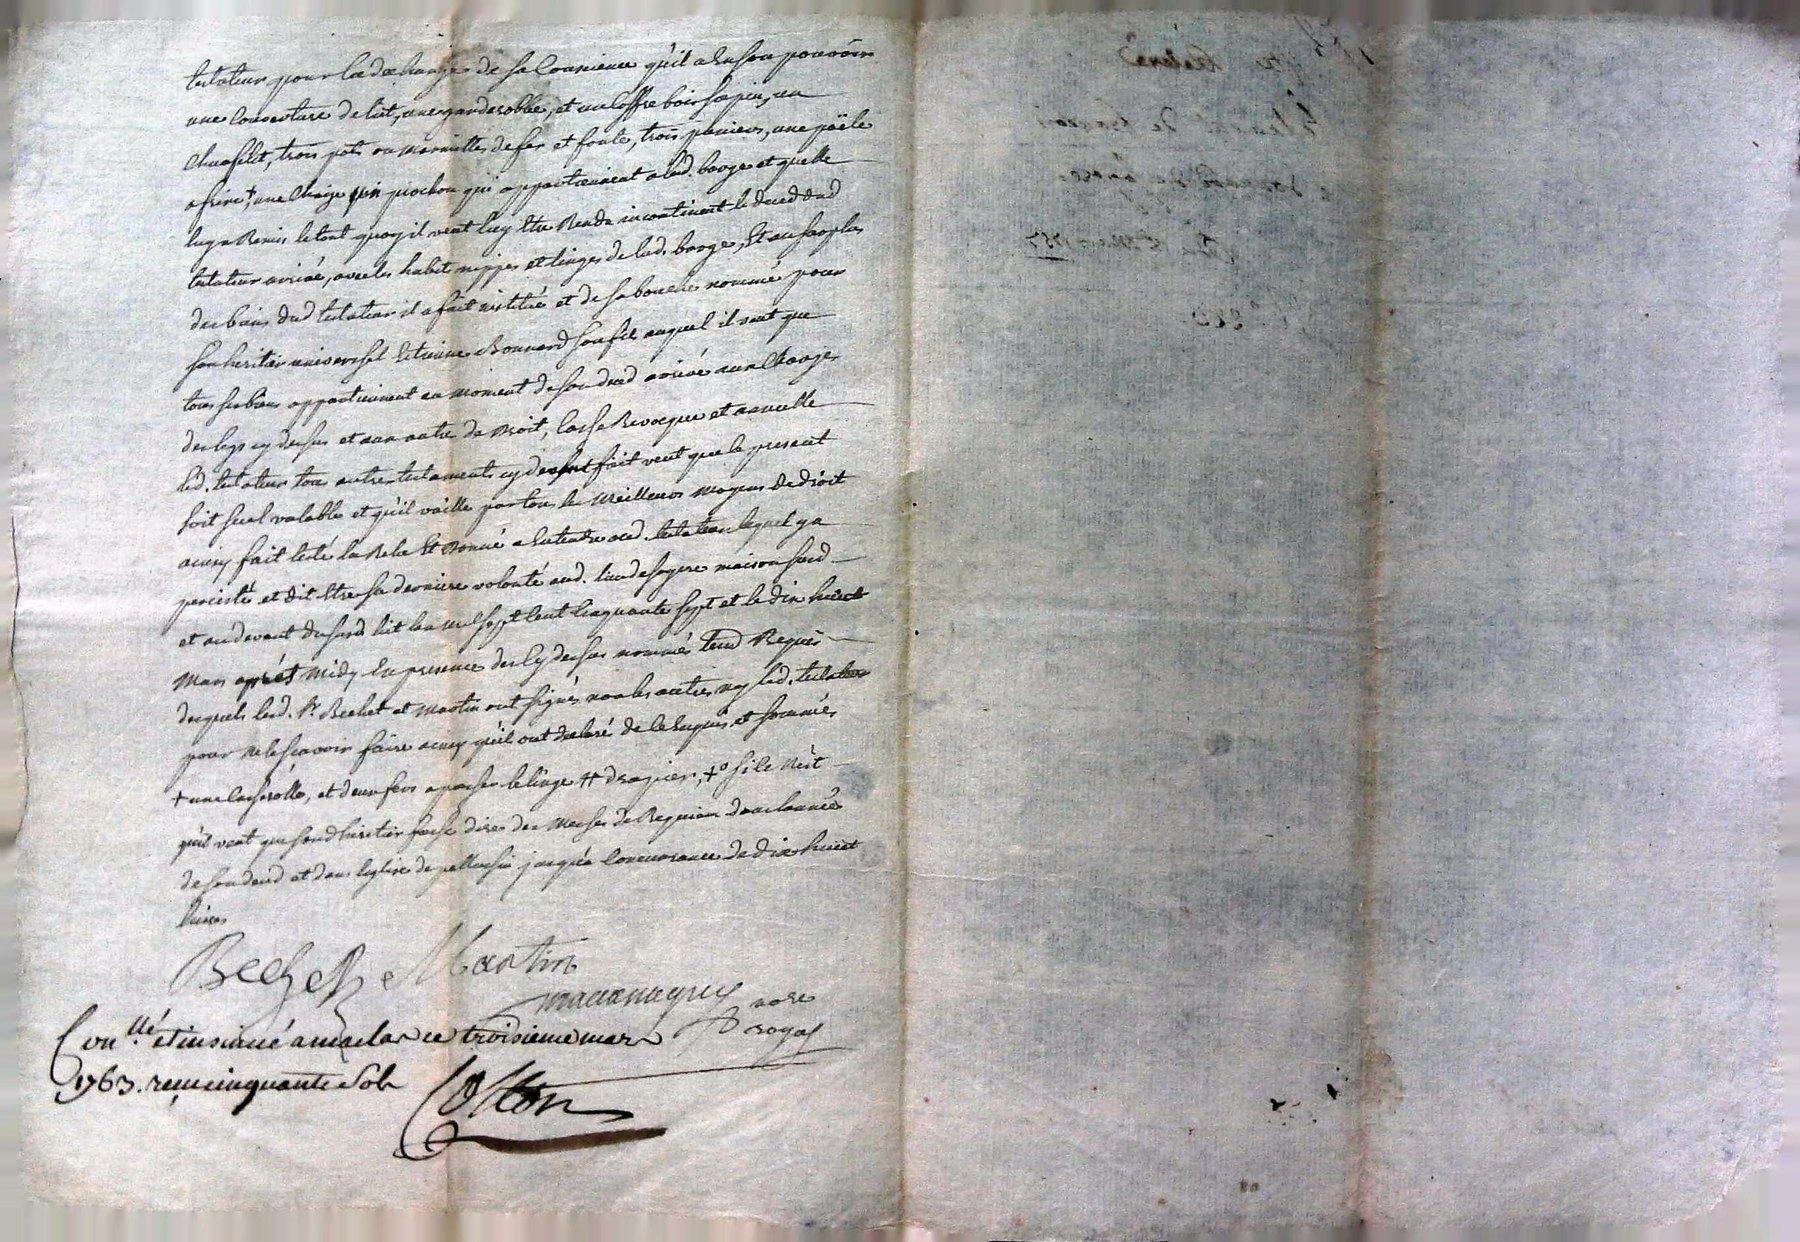 testateur pour la décharge de sa Consience qu'il a En son pouvoir
une Couverture de lict, une garderobbe, et un Coffre bois sapin, un
Chaslit, trois pots ou marmittes de fer et fonte, trois paniers, une poële
a frire, + une Chaise un piochon qui appartienent a lad. barge et quelle
luy a Remis le tout quoy il veut luy Etre Rendu incontinent le deced dud
testateur arrivé, avec les habit nippes et linges de lad. barge, Et au surplus
des biens dud testateur il a fait institué et de sa bouche nommé pour
son heritier universel Estienne Bonnard son fils auquel il veut que
tous ses biens appartiennent au moment de son deced arrivé aux Charges
des legs cy dessus et aux autre de Droit, Casse Revocque et annulle
led. testateur tous autres testaments cy devant fait veut que le present
soit seul valable et qu'il vaille par tous les meilleurs moyens de droit
ainsy fait testé lu Relu Et Donné a Entendre aud. testateur lequel y a
percisté et dit Etre sa derniere volonté aud. lieu de sogere maison sud
et au devant du susd lict l'an mil sept Cent Cinquante sept et le dix huict
Mars aprés Midy En presence des Cy dessus nommés temd Requis
desquels lesd. Sr Bechet et Martin ont signés non les autres ny led. testateur
pour ne le sçavoir faire ainsy qu'il ont declaré de Ce Enquis et sommés
+ une Casserolle, et deux fers a passer le linge ++ drapier, +o si le Nèst
qu'il veut que sond heritier fasse dires des Messes de Requiem dans l'année
de son deced et dans l'eglise de pellussin jusqu'a Concurrance de dix huict
livres
Bechet Martin
nore
royal
Conllé et insinué a maclas ce troisieme mars
1763. reçu cinquante sols
Coston